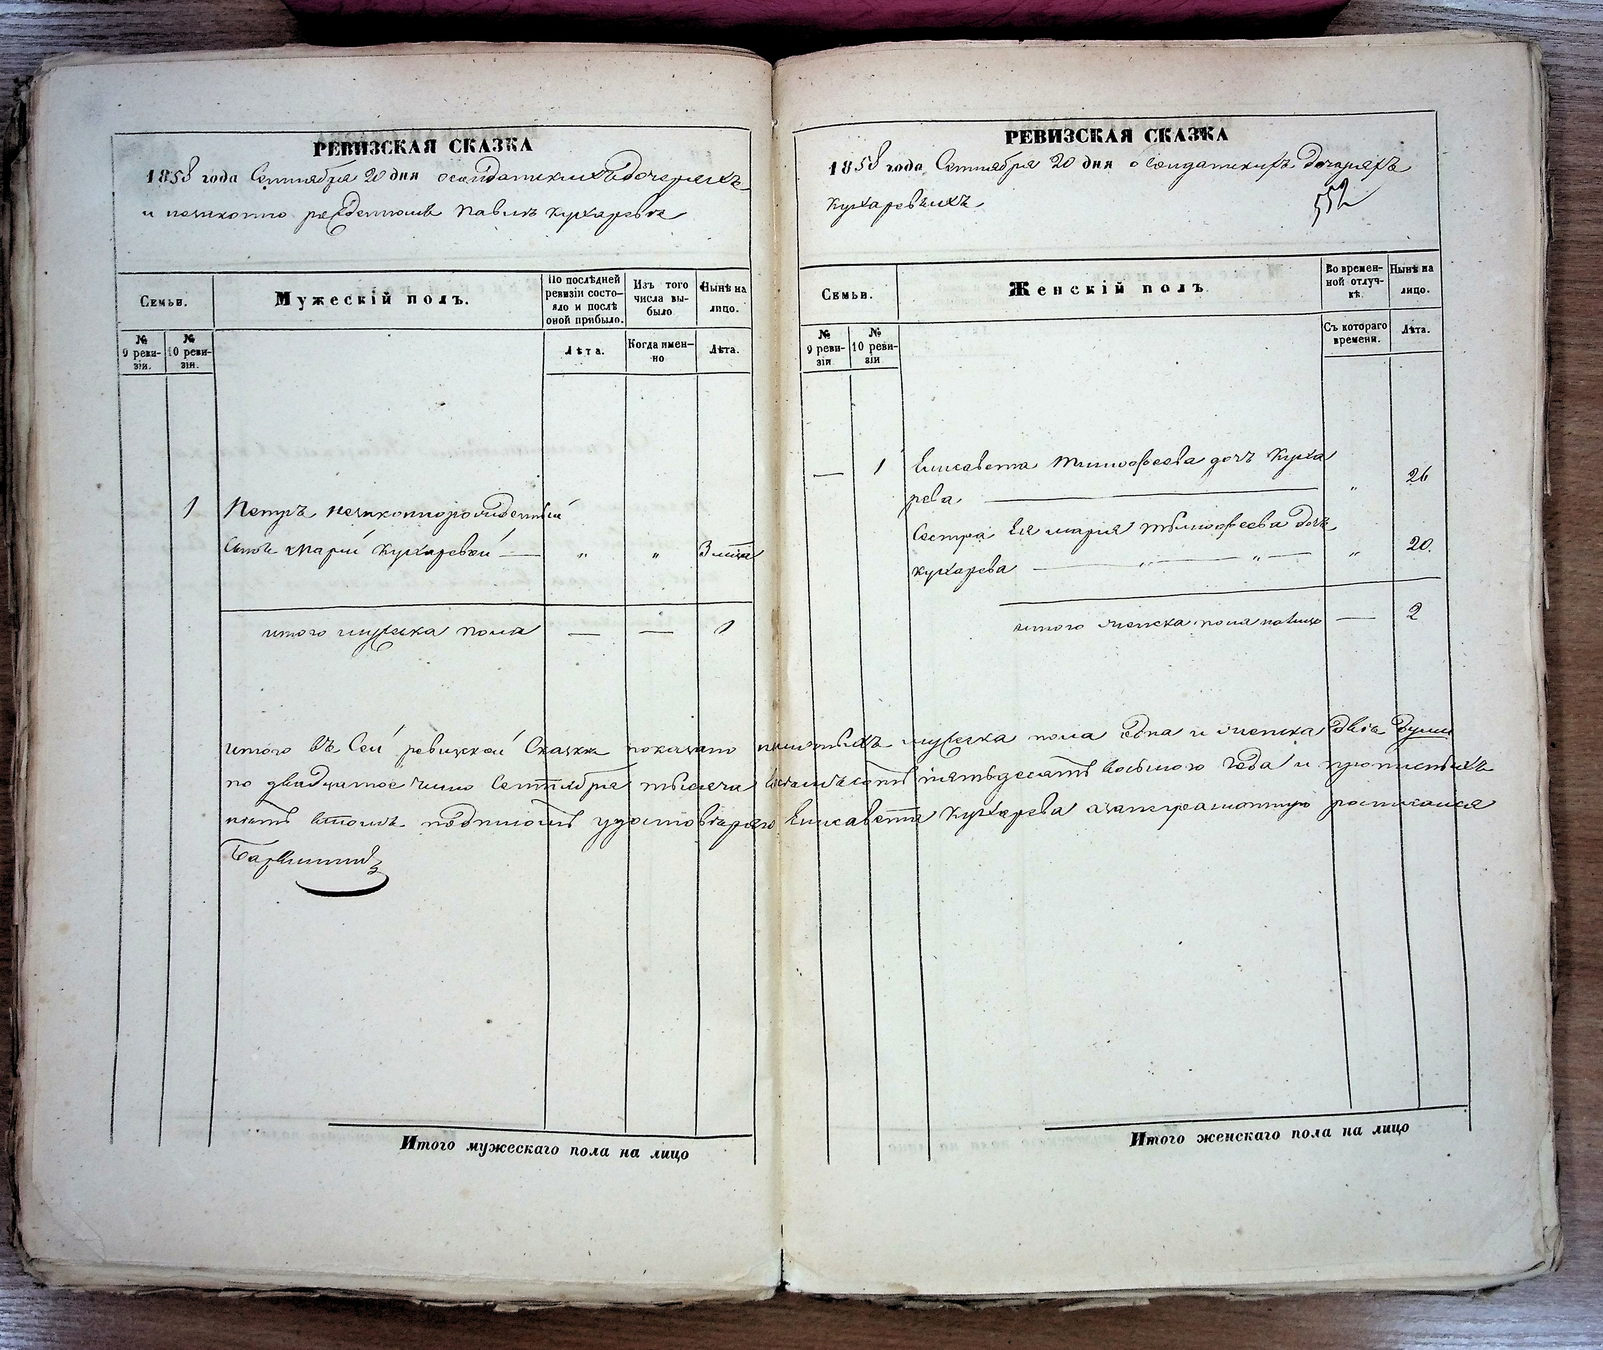 РЕВИЗСКАЯ СКАЗКА
1858 года Сентября 20 дня о солдатскихъ дочеряхъ
и незаконно рожденномъ Павлѣ Кухаревѣ
Семьи.
Мужескій полъ.
По послѣдней ревизіи состояло и послѣ оной прибыло.
Изъ того числа выбыло
Нынѣ на лицо.
№ 9 ревизіи.
№ 10 ревизіи.
Лѣта.
Когда именно
Лѣта.
1 Петръ незаконнорожденный
сынъ Маріи Кухаревой — „ „ 3 мѣсяца
итого мужеска пола — — 1
РЕВИЗСКАЯ СКАЗКА
1858 года Сентября 20 дня о солдатскихъ дочеряхъ
Кухаревыхъ
552
Семьи.
Женскій полъ.
Во временной отлучкѣ.
Нынѣ на лицо.
№ 9 ревизіи
№ 10 ревизіи
Съ котораго времени.
Лѣта.
— 1 Елисавета Тимофеева дочь Куха
рева. — „ 26
Сестра Ея Мария Тимофеева дочь
Кухарева — „ — „ — „ 20.
итого женска пола налицо — 2
итого въ Сей ревизской Сказкѣ показано наличныхъ мужеска пола одна и женска двѣ души
по двадцатое число Сентября тысяча восемьсотъ пятьдесятъ восьмого года и прописныхъ
нѣтъ втомъ подписомъ удостовѣряю Елисавета Кухарева азанеграмотную росписался
Итого мужескаго пола на лицо
Итого женскаго пола на лицо